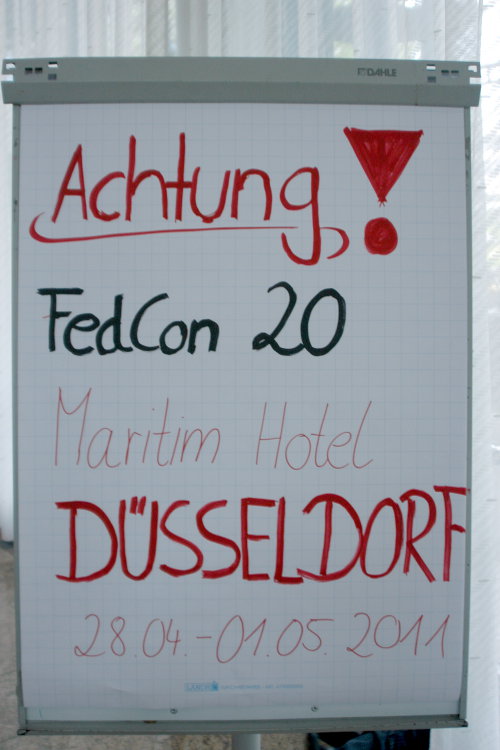 DAHLE
Achtung!
FedCon 20
Maritim Hotel
DÜSSELDORF
28.04.-01.05.2011